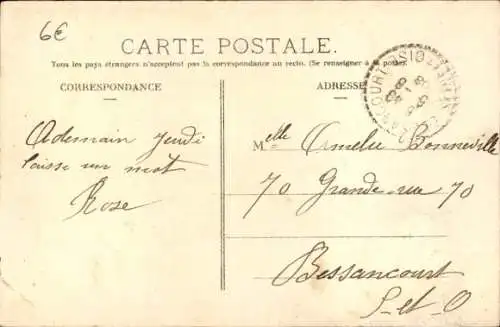 6€
CARTE POSTALE.
Tous les pays étrangers n'acceptent pas la correspondance au recto. (Se renseigner à la poste)
CORRESPONDANCE
ADRESSE
A demain jeudi
laisse un mot
Rose
Melle Amelie Bonneville
70 Grande rue 70
Bessancourt
S-et-O